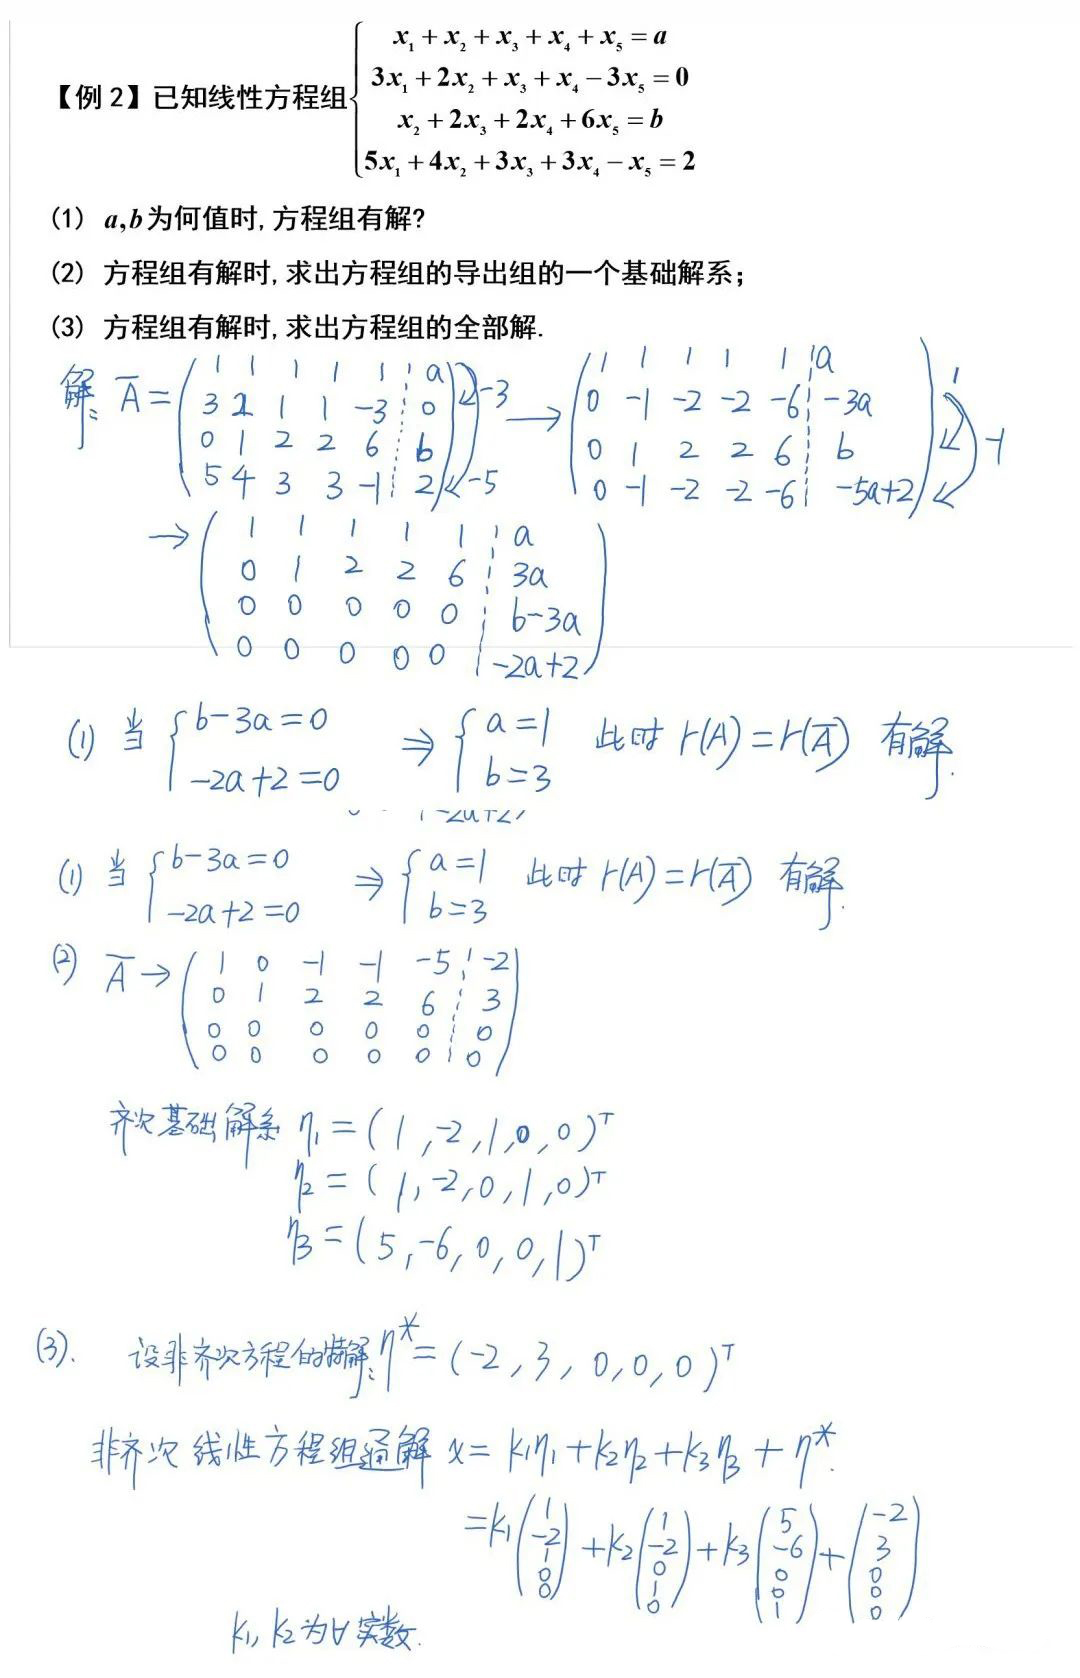 【例 2】已知线性方程组
x₁ + x₂ + x₃ + x₄ + x₅ = a
3x₁ + 2x₂ + x₃ + x₄ − 3x₅ = 0
x₂ + 2x₃ + 2x₄ + 6x₅ = b
5x₁ + 4x₂ + 3x₃ + 3x₄ − x₅ = 2
(1) a,b为何值时, 方程组有解?
(2) 方程组有解时, 求出方程组的导出组的一个基础解系;
(3) 方程组有解时, 求出方程组的全部解.
解: A̅ =
1 1 1 1 1 a
3 2 1 1 -3 0
0 1 2 2 6 b
5 4 3 3 -1 2
-3
-5
→
1 1 1 1 1 a
0 -1 -2 -2 -6 -3a
0 1 2 2 6 b
0 -1 -2 -2 -6 -5a+2
1
-1
→
1 1 1 1 1 a
0 1 2 2 6 3a
0 0 0 0 0 b-3a
0 0 0 0 0 -2a+2
(1) 当 { b-3a=0
-2a+2=0
⇒ { a=1
b=3
此时 r(A)=r(A̅) 有解.
(1) 当 { b-3a=0
-2a+2=0
⇒ { a=1
b=3
此时 r(A)=r(A̅) 有解.
(2) A̅ →
1 0 -1 -1 -5 -2
0 1 2 2 6 3
0 0 0 0 0 0
0 0 0 0 0 0
齐次基础解系 η₁ = (1,-2,1,0,0)ᵀ
η₂ = (1,-2,0,1,0)ᵀ
η₃ = (5,-6,0,0,1)ᵀ
(3). 设非齐次方程的特解: η* = (-2,3,0,0,0)ᵀ
非齐次线性方程组通解 x = k₁η₁+k₂η₂+k₃η₃+η*.
= k₁(1 -2 1 0 0) + k₂(1 -2 0 1 0) + k₃(5 -6 0 0 1) + (-2 3 0 0 0)
k₁, k₂为∀实数.